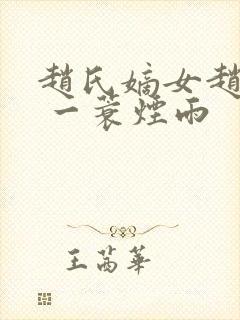 趙氏嫡女趙
一蓑煙雨
王茜華